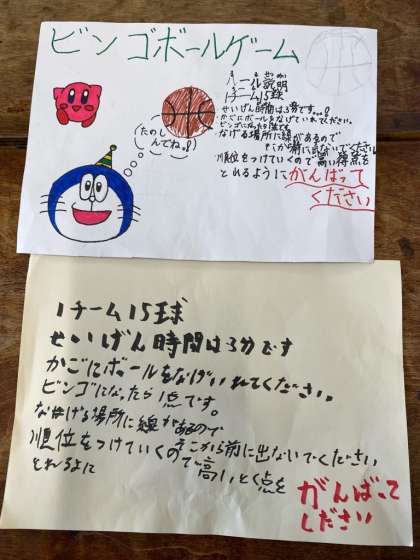 ビンゴボールゲーム
ルール説明
1チーム15球
せいげん時間は3分です。
かごにボールをなげいれてください。
なげる場所に線があるので
そこから前に出ないでください
順位をつけていくので高い得点を
とれるようにがんばって
ください
たのし
んでね。!
1チーム15球
せいげん時間は3分です
かごにボールをなげいれてください。
ビンゴになったら1点です。
なげる場所に線があるので
そこから前に出ないでください
順位をつけていくので高いとく点を
とれるよに
がんばって
しださい